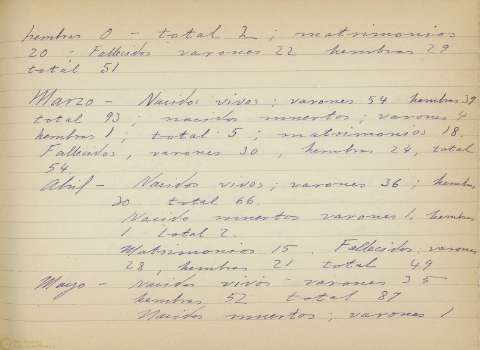 hembras 0 - total 2; matrimonios
20 - Fallecidos varones 22 hembras 29
total 51
Marzo - Nacidos vivos; varones 54 hembras 39
total 93; nacidos muertos; varones 4
hembras 1; total 5; matrimonios 18.
Fallecidos, varones 30, hembras 24, total
54
Abril - Nacidos vivos; varones 36; hembras
30 total 66.
Nacido muertos varones 1, hembras
1 total 2.
Matrimonios 15. Fallecidos varones
28, hembras 21 total 49
Mayo - Nacidos vivos varones 35
hembras 52 total 87
Nacidos muertos; varones 1